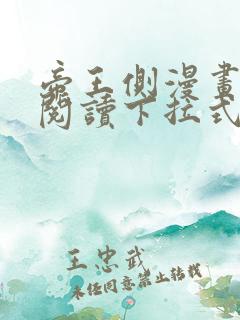 帝王側漫畫
閱讀下拉式
王忠武
未经同意禁止转载